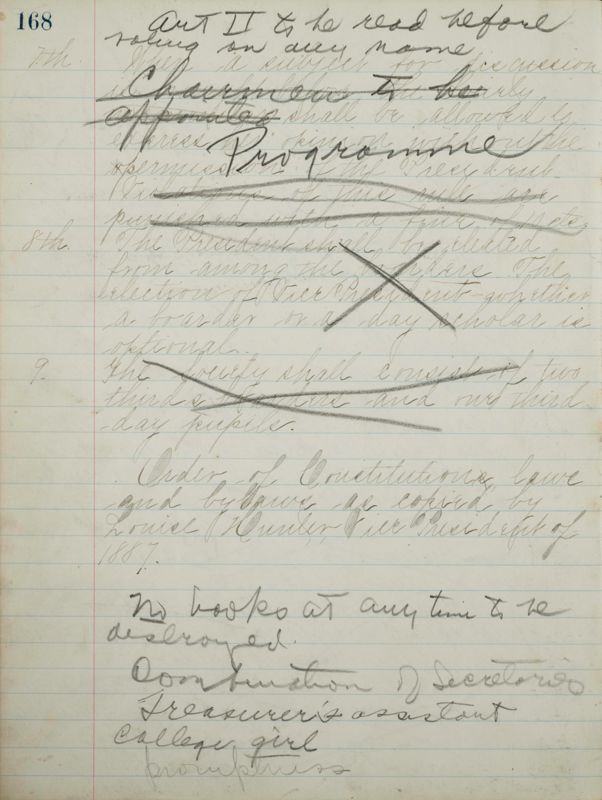 168
Art II to be read before
voting on any name
7th. When a subject for discussion
shall be allowed to
Chairmen to be
appointed
express without the
Programme
permission of the President
Violations of this rule are
punished with a fine of
8th. The President shall be elected
from among the boarders. The
election of Vice President whether
a boarder or a day scholar is
optional.
9. The Society shall consist of two
thirds boarders and one third
day pupils.
Order of Constitutions, laws
and by laws as copied by
Louise Hunter, Vice President of
1887.
No books at any time to be
destroyed.
Combination of Secretaries
Treasurer's assistant
College girl
promptness